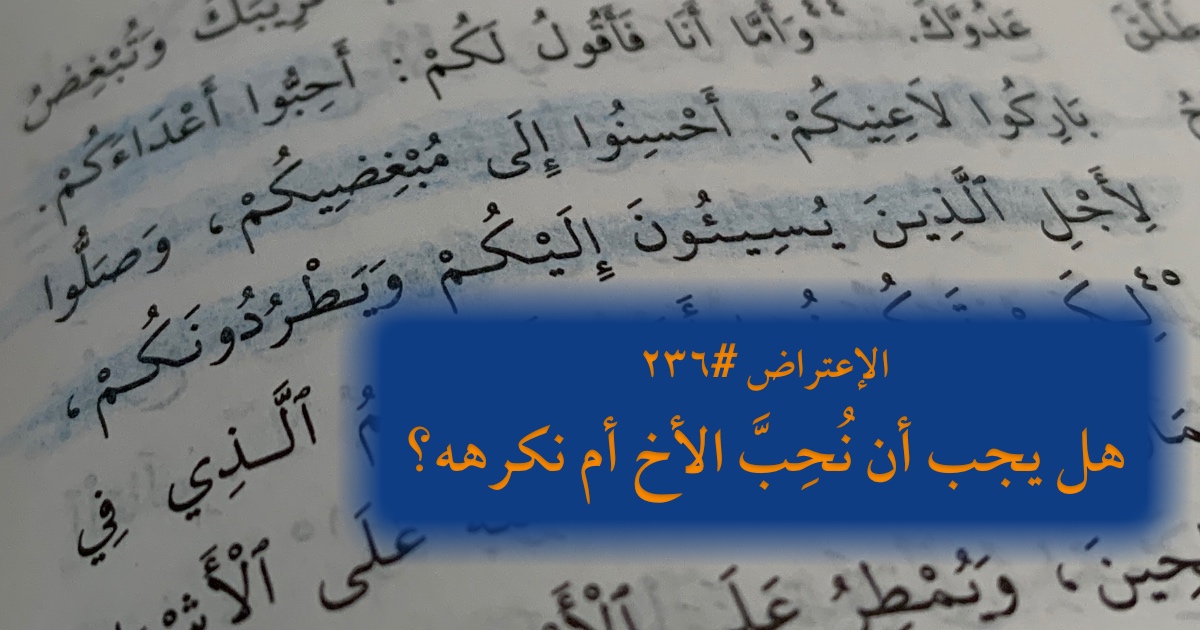 قَرِيبَكَ وَتُبْغِضُ
عَدُوَّكَ. ٤٤ وَأَمَّا أَنَا فَأَقُولُ لَكُمْ: أَحِبُّوا أَعْدَاءَكُمْ.
بَارِكُوا لاَعِنِيكُمْ. أَحْسِنُوا إِلَى مُبْغِضِيكُمْ، وَصَلُّوا
لِأَجْلِ ٱلَّذِينَ يُسِيئُونَ إِلَيْكُمْ وَيَطْرُدُونَكُمْ،
٤٥
ٱلَّذِي فِي
عَلَى
وَيُمْطِرُ عَلَى
الإعتراض #٢٣٦
هل يجب أن نُحِبَّ الأخ أم نكرهه؟